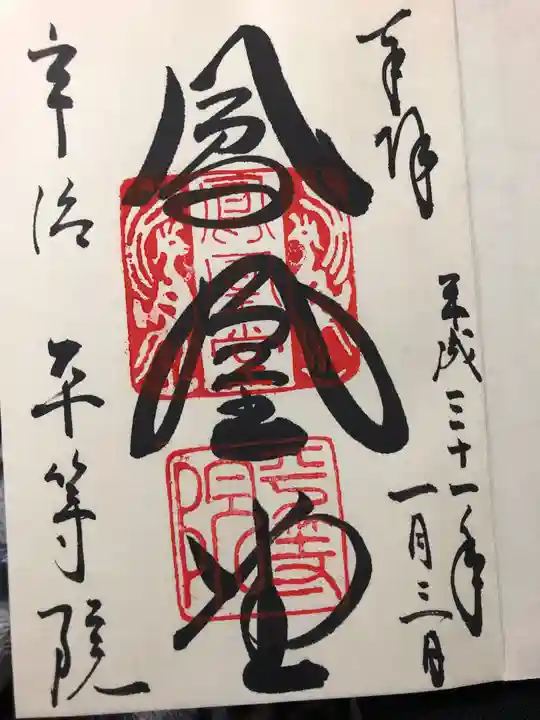 奉拝
平成三十一年
一月三日
鳳凰堂
宇治 平等院
鳳凰堂
平等院